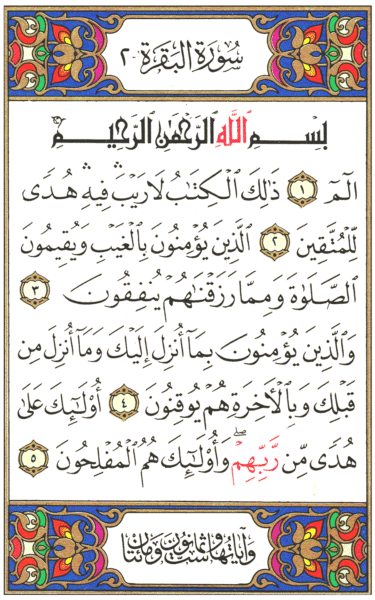 سُورَةُ البَقَرَة ٢
بِسْمِ اللَّهِ الرَّحْمَنِ الرَّحِيمِ
الٓمٓ ١ ذَٰلِكَ الْكِتَٰبُ لَا رَيْبَ ۛ فِيهِ ۛ هُدًى
لِّلْمُتَّقِينَ ٢ الَّذِينَ يُؤْمِنُونَ بِالْغَيْبِ وَيُقِيمُونَ
الصَّلَوٰةَ وَمِمَّا رَزَقْنَٰهُمْ يُنفِقُونَ ٣
وَالَّذِينَ يُؤْمِنُونَ بِمَآ أُنزِلَ إِلَيْكَ وَمَآ أُنزِلَ مِن
قَبْلِكَ وَبِالْأَخِرَةِ هُمْ يُوقِنُونَ ٤ أُوْلَٰٓئِكَ عَلَىٰ
هُدًى مِّن رَّبِّهِمْ ۖ وَأُوْلَٰٓئِكَ هُمُ الْمُفْلِحُونَ ٥
وَآيَاتُهَا سِتٌّ وَثَمَانُونَ وَمِائَتَانِ